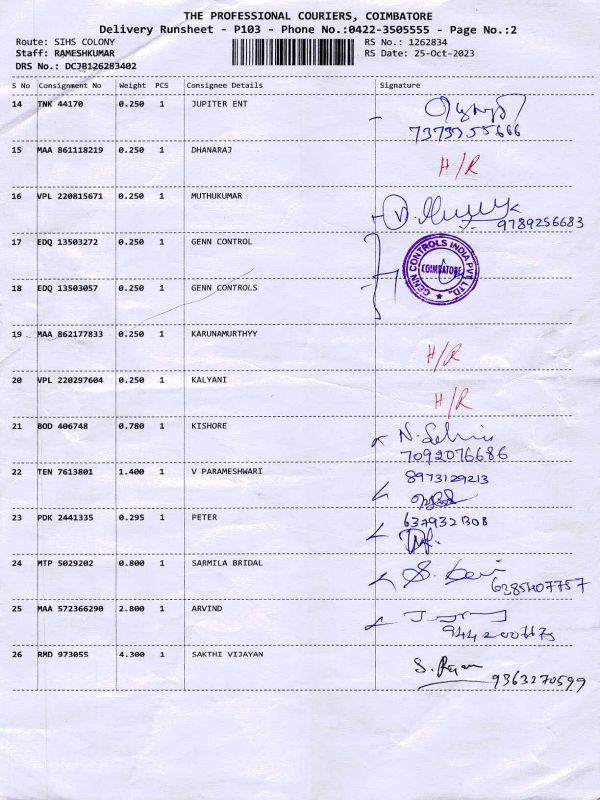 THE PROFESSIONAL COURIERS, COIMBATORE
Delivery Runsheet - P103 - Phone No.:0422-3505555 - Page No.:2
Route: SIHS COLONY RS No.: 1262834
Staff: RAMESHKUMAR RS Date: 25-Oct-2023
DRS No.: DCJB126283402
S No Consignment No Weight PCS Consignee Details Signature
14 TNK 44170 0.250 1 JUPITER ENT
7373955666
15 MAA 861118219 0.250 1 DHANARAJ H/R
16 VPL 220815671 0.250 1 MUTHUKUMAR
9789256683
17 EDQ 13503272 0.250 1 GENN CONTROL
GENN CONTROLS INDIA PVT LTD.,
COIMBATORE
18 EDQ 13503057 0.250 1 GENN CONTROLS
19 MAA 862177833 0.250 1 KARUNAMURTHYY H/R
20 VPL 220297604 0.250 1 KALYANI H/R
21 BOD 406748 0.780 1 KISHORE
7092076686
22 TEN 7613801 1.400 1 V PARAMESHWARI 8973129213
23 PDK 2441335 0.295 1 PETER 6379321308
24 MTP 5029202 0.800 1 SARMILA BRIDAL
6385407757
25 MAA 572366290 2.800 1 ARVIND
26 RMD 973055 4.300 1 SAKTHI VIJAYAN
9363270599